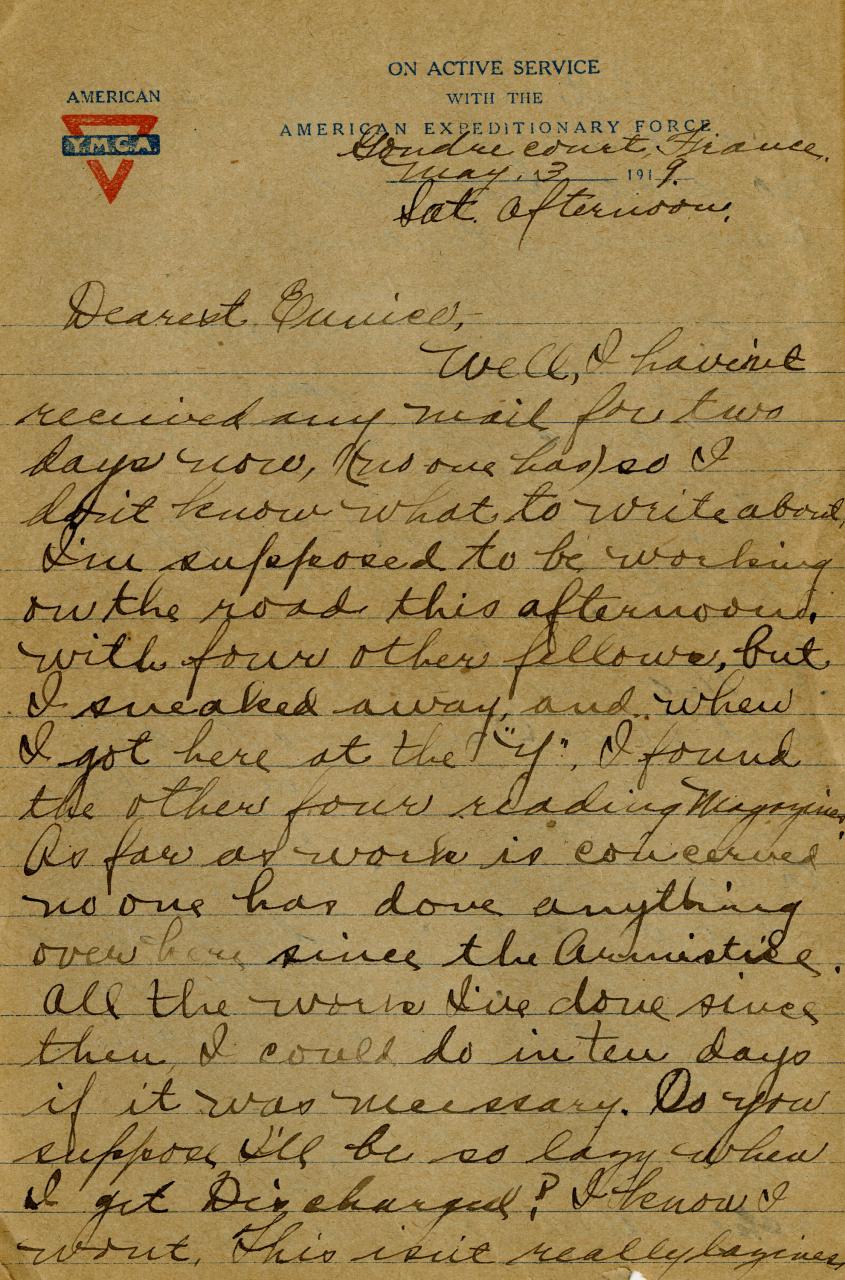 ON ACTIVE SERVICE
WITH THE
AMERICAN EXPEDITIONARY FORCE
AMERICAN
Y.M.C.A.
Gondrecourt, France.
May. 3 1919.
Sat. afternoon.
Dearest Eunice,-
Well, I havin't
received any mail for two
days now, (no one has) so I
don't know what to write about,
I'm supposed to be working
on the road this afternoon,
with four other fellows, but
I sneaked away, and when
I got here at the "Y", I found
the other four reading Magazines.
As far as work is concerned
no one has done anything
over here since the Armistice.
All the work I've done since
then I could do in ten days
if it was necessary. Do you
suppose I'll be so lazy when
I get Discharged? I know I
wont. This isn't really laziness